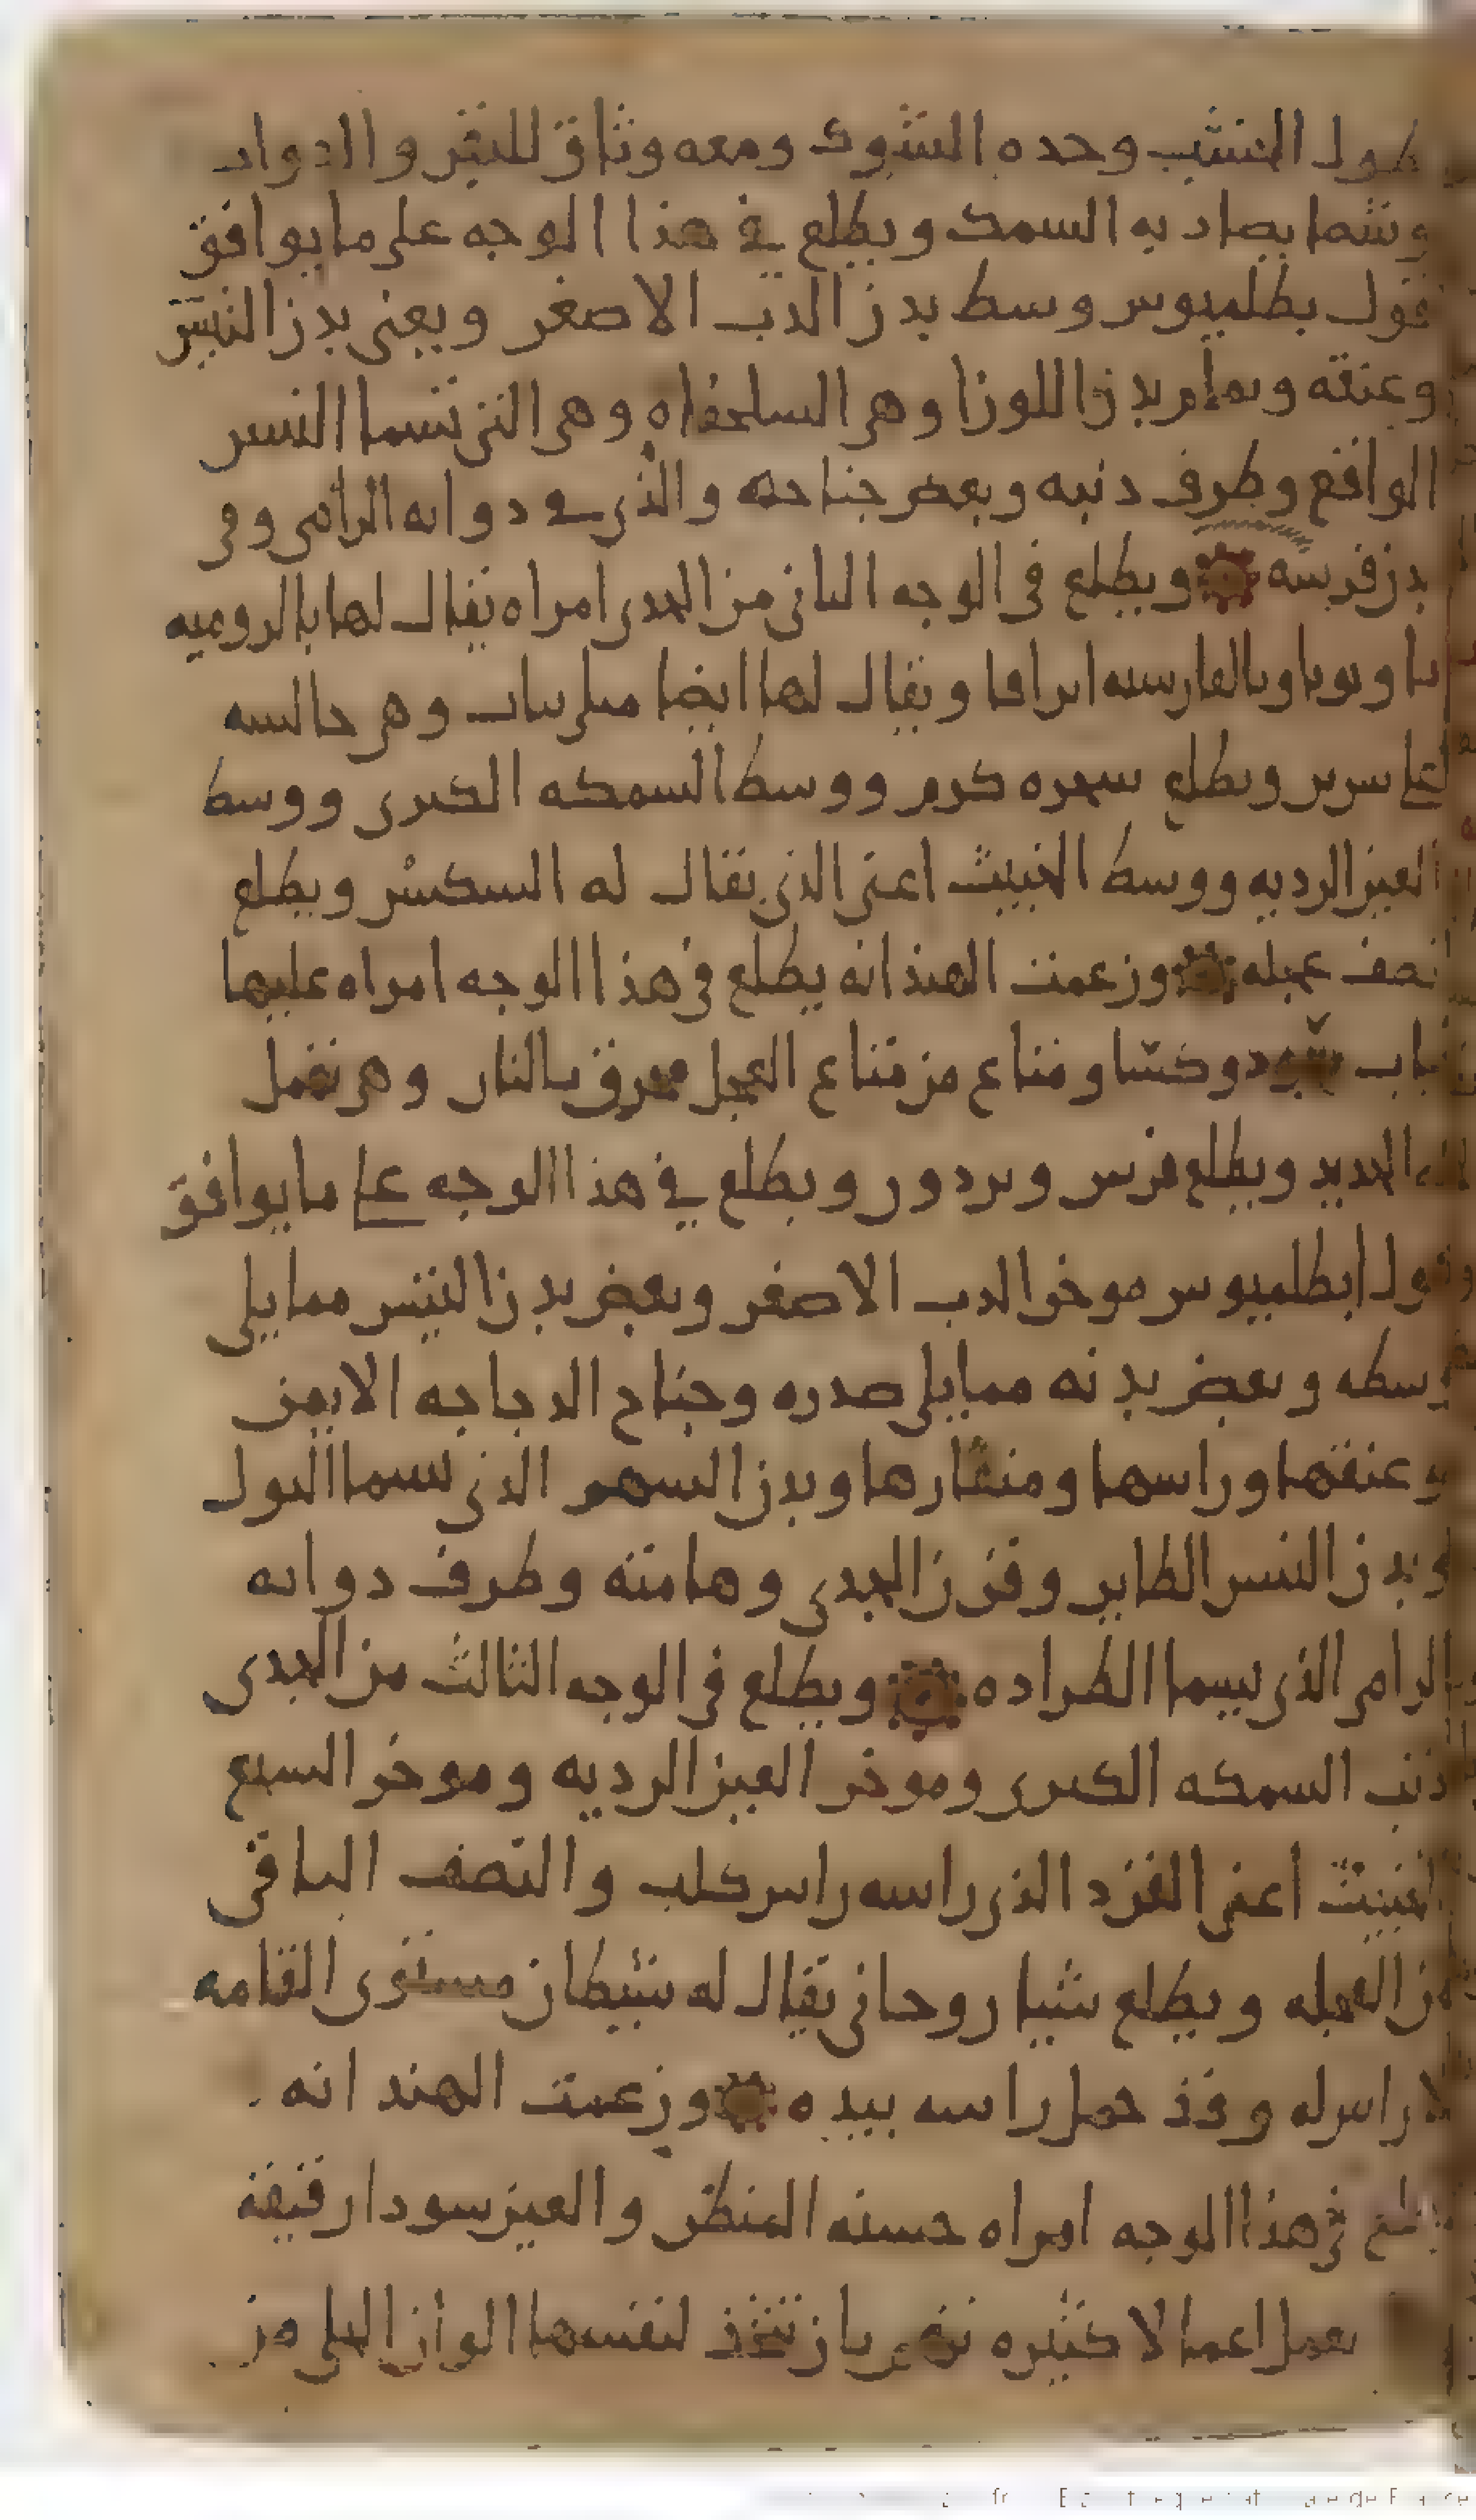 طول الخشب وحده الشوك ومعه وثاق للبقر والدواب
وشما يصاد به السمك ويطلع في هذا الوجه على ما يوافق
قول بطلميوس وسط بدن الدب الاصغر ويعنى بدن التنين
وعنقه وتمام بدن اللوزا وهى السلحفاه وهى التى تسما النسر
الواقع وطرف دنبه وبعض جناحه والذى في دوابه الرامى وفى
بدن فرسه ويطلع فى الوجه الثانى من الجدى امراه يقال لها بالروميه
وبالفارسيه ويقال لها ايضا وهى جالسه
على سرير ويطلع شجره كرم ووسط السمكه الكبرى ووسط
العين الرديه ووسط الخبيث اعنى الذى يقال له السكسر ويطلع
نصف عجله وزعمت الهند انه يطلع فى هذا الوجه امراه عليها
ثياب سود وكسا وقناع من قناع العجل محرق بالنار وهى تعمل
الحديد ويطلع فرس وبردور ويطلع في هذا الوجه على ما يوافق
قول ابطلميوس موخر الدب الاصغر وبعض بدن التنين مما يلى
وسطه وبعض بدنه مما يلى صدره وجناح الدجاجه الايمن
وعنقها وراسها ومنقارها وبدن السهم الذى تسما النول
وبدن النسر الطاير وقرن الجدى وهامته وطرف دوابه
الرامى الذى يسما الطراده ويطلع فى الوجه الثالث من الجدى
ذنب السمكه الكبرى وموخر العين الرديه وموخر السبع
الخبيث اعنى القرد الذى راسه راس كلب والنصف الباقى
من العجله ويطلع شيا روحانى يقال له شيطان مستوى القامه
لا راس له وقد حمل راسه بيده وزعمت الهند انه
يطلع فى هذا الوجه امراه حسنه المنظر والعين سودا رقيقه
تعمل اعمالا كثيره تهم بان تتخذ لنفسها الوان الحلى من